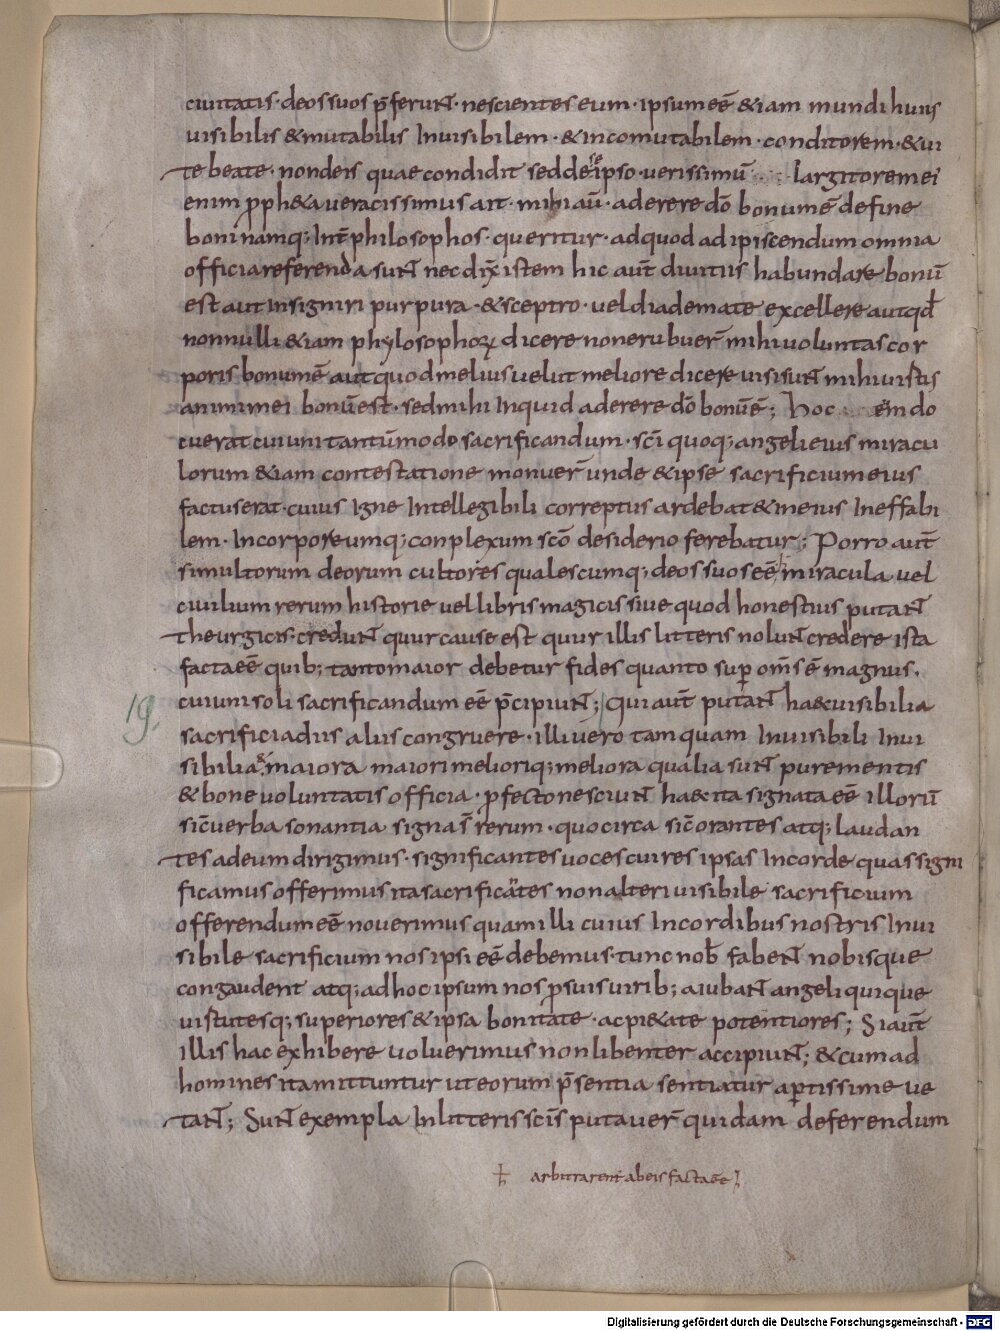 ciuitatis· deos suos p̄ferunt· nescientes eum· ipsum eē &iam mundi huius
uisibilis & mutabilis Inuisibilem· & incomutabilem· conditorem· & ui
te beate· non deis quae condidit sed de se ipso· uerissimū largitorem ei
enim p̱ph&a ueracissimus ait· mihi aū· aderere dō bonum ē de fine
boni namq; Int̄ philosophos· queritur· ad quod adipiscendum omnia
officia referenda sunt nec dix̄ istem hic aut̄ diuitiis habundare bonū
est aut Insigniri purpura· & sceptro· uel diademate excellere aut qđ
non nulli &iam phylosophoꝝ dicere non erubuer̄ mihi uoluntas cor
poris bonum ē aut quod melius uelut meliore dicere uisi sunt mihi uirtis
animi mei bonū est· sed mihi Inquid aderere dō bonū ē; hoc em do
cuerat cui uni tantū modo sacrificandum· sc̄i quoq; angeli eius miracu
lorum &iam contestatione monuer̄ unde & ipse sacrificium eius
factus erat· cuius Igne Intellegibili correptus ardebat & in eius Ineffabi
lem· Incorporeumq; conplexum scō desiderio ferebatur; Porro aut̄
si multorum deorum cultores qualescumq; deos suos eē miracula uel
ciuilium rerum historie uel libris magicis siue quod honestius putant
theurgicis· credunt quur cause est quur illis litteris nolunt credere ista
facta eē quib; tanto maior debetur fides quanto sup̱ om̄s ē magnus·
cui uni soli sacrificandum eē p̄cipiunt; Qui aut̄ putant ha&uisibilia
19.
sacrificia diis aliis congruere· illi uero tam quam Inuisibili Inui
sibilia & maiora maiori melioriq; meliora qualia sunt pure mentis
& bone uoluntatis officia· p̱fecto nesciunt ha& ita signata eē illorū
sic̄ uerba sonantia signa s̄ rerum· quo circa sic̄ orantes atq; laudan
tes ad eum dirigimus· significantes uoces cui res ipsas In corde quas signi
ficamus offerimus ita sacrificātes non alteri uisibile sacrificium
offerendum eē nouerimus quam illi cuius In cordibus nostris Inui
sibile sacrificium nos ipsi eē debemus· tunc nob̄ fabent nobisque
congaudent atq; ad hoc ipsum nos p̱ suis uirib; aiubant angeli quique
uirtutesq; superiores & ipsa bonitate· ac pi&ate potentiores; Si aut̄
illis hac exhibere uoluerimus non libenter accipiunt; & cum ad
homines ita mittuntur ut eorum p̄sentia sentiatur ap̱tissime ue
tant; Sunt exempla In litteris sc̄is putauer̄ quidam deferendum
arbitrarent ab eis facta eē
Digitalisierung gefördert durch die Deutsche Forschungsgemeinschaft - DFG